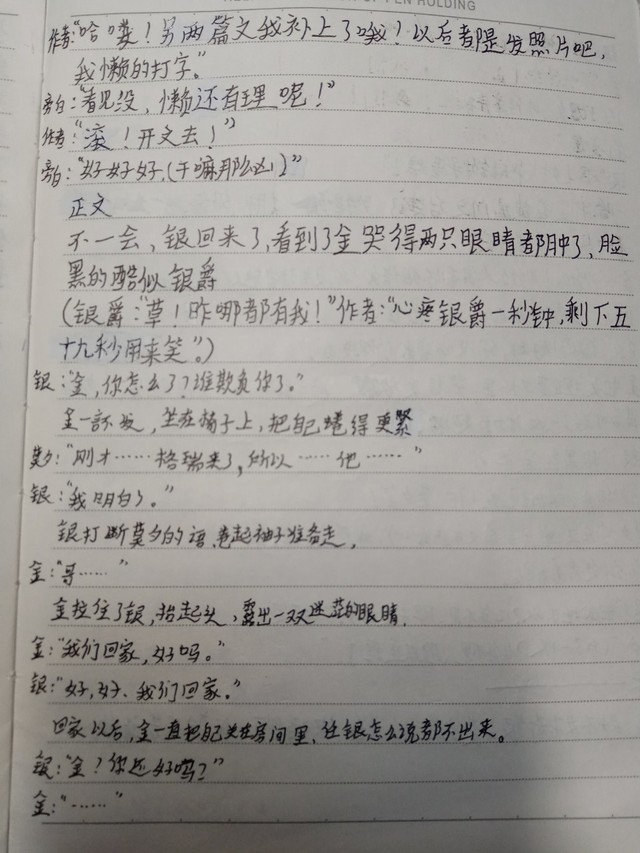 OF PEN HOLDING
作者:“哈喽！另两篇文我补上了哦！以后都是发照片吧,
我懒的打字。”
旁白:“看见没，懒还有理呢！”
作者:“滚！开文去！”
旁白:“好好好.(干嘛那么凶)”
正文
不一会，银回来了,看到了金哭得两只眼睛都肿了,脸
黑的酷似银爵
(银爵:“草！咋哪都有我！”作者:“心疼银爵一秒钟,剩下五
十九秒用来笑”。)
银:“金,你怎么了？谁欺负你了。”
金一言不发，坐在椅子上,把自己蜷得更紧
莫夕:“刚才……格瑞来了,所以……他……”
银:“我明白了。”
银打断莫夕的话.卷起袖子准备走,
金:“哥……”
金拉住了银,抬起头,露出一双迷茫的眼睛.
金:“我们回家,好吗。”
银:“好,好、我们回家。”
回家以后,金一直把自己关在房间里、任银怎么说都不出来。
银:“金？你还好吗？”
金:“……”